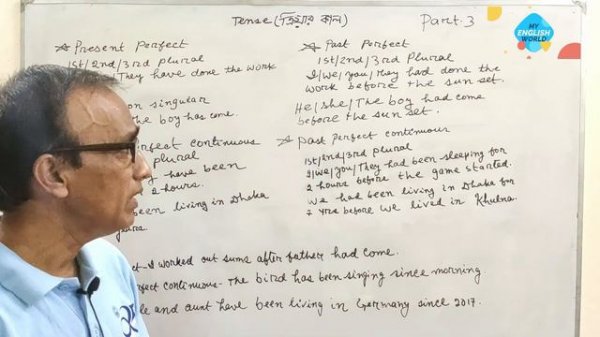 Tense (ক্রিয়ার কাল)
Part. 3
MY ENGLISH WORLD
Present Perfect
1st/2nd/3rd Plural
They have done the work
on singular
The boy has come.
rfect continuous
plural
y have been
2 hours.
been living in Dhaka
years.
Past Perfect
1st/2nd/3rd Plural
I/we/you/They had done the
work before the sun set.
He/she/The boy had come
before the sun set.
Past Perfect continuous
1st/2nd/3rd Plural
I/we/you/They had been sleeping for
2 hours before the game started.
We had been living in Dhaka for
2 yrs before we lived in Khulna.
ct- I worked out sums after father had come.
rfect continuous- The bird has been singing since morning
le and aunt have been living in Germany since 2017.